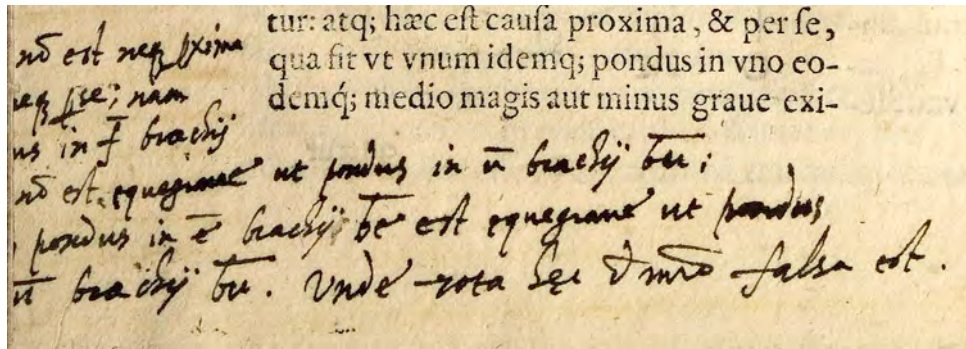 tur: atq; hæc eſt cauſa proxima, & per ſe,
qua fit vt vnum idemq; pondus in vno eo-
demq́; medio magis aut minus graue exi-
nō est neq; ꝓxima
neq; ꝑ se; nam
us in f̄ brachij
nō est equegraue ut pondus in ū brachij b̄ū;
pondus in ē brachij b̄ē est equegraue ut pondus
ū brachij b̄ū. Vnde tota hęc falsa est.